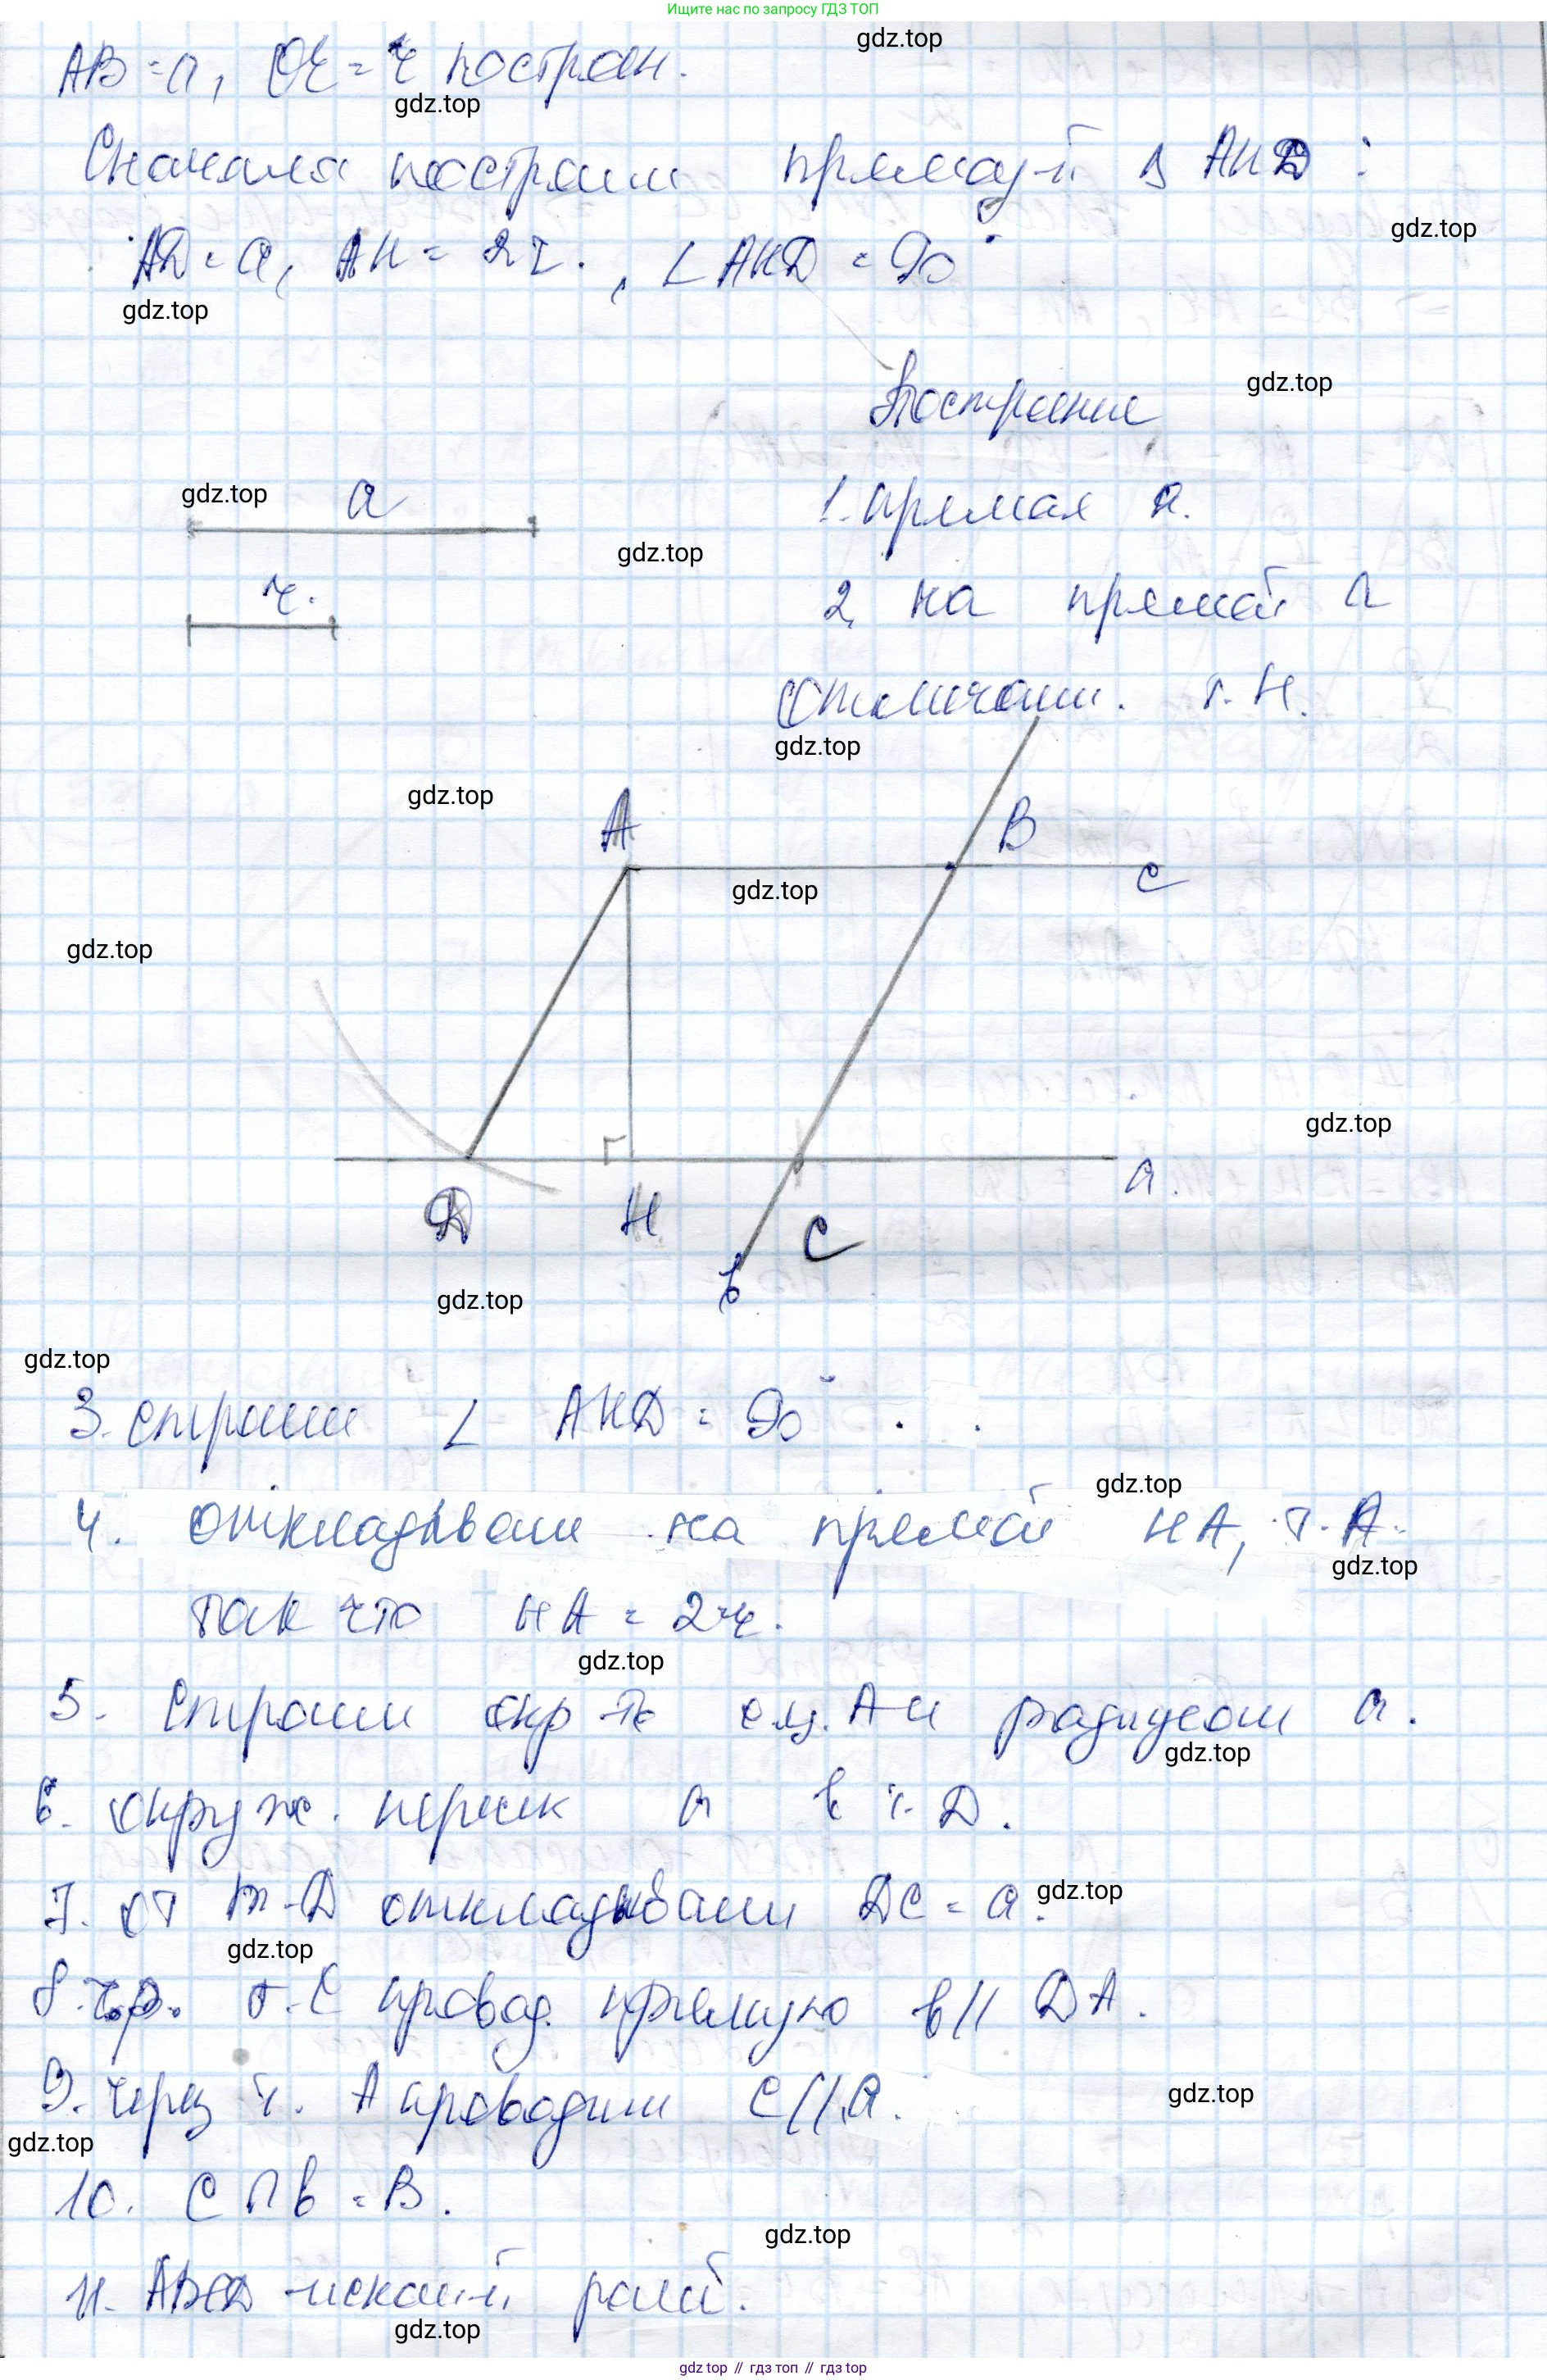 Ищите нас по запросу ГДЗ ТОП
gdz.top
AB = a, OE = r построен.
gdz.top
Сначала построим прямоуг-й Δ AHD :
gdz.top
AD = a, AH = 2r. , ∠ AHD = 90°
gdz.top
Построение
gdz.top
gdz.top
a
1. прямая a.
gdz.top
r.
2. на прямой a
отмечаем. т. H.
gdz.top
gdz.top
A
B
gdz.top
c
gdz.top
gdz.top
a.
D
H
C
b
gdz.top
gdz.top
3. строим ∠ AHD = 90° .
gdz.top
4. откладываем на прямой HA, т. A.
gdz.top
так что HA = 2r.
gdz.top
5. Строим окр-ть с ц. A и радиусом a.
gdz.top
6. окруж. перес a в т. D.
7. от т. D откладываем DC = a.
gdz.top
gdz.top
8. чр. т. C провод. прямую b || DA.
9. через т. A проводим c || a.
gdz.top
gdz.top
10. c ∩ b = B.
gdz.top
11. ABCD - искомый ромб.
gdz.top
gdz top // гдз топ // гдз top